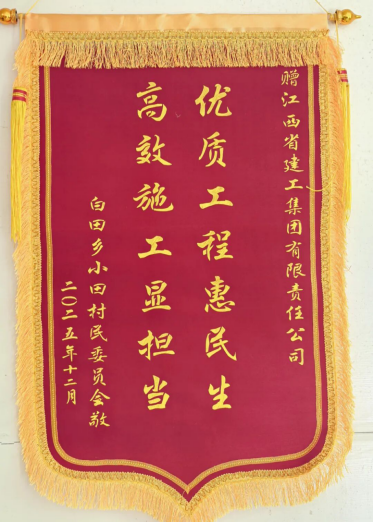 赠江西省建工集团有限责任公司
优质工程惠民生
高效施工显担当
白田乡小田村民委员会敬
二〇二五年十二月